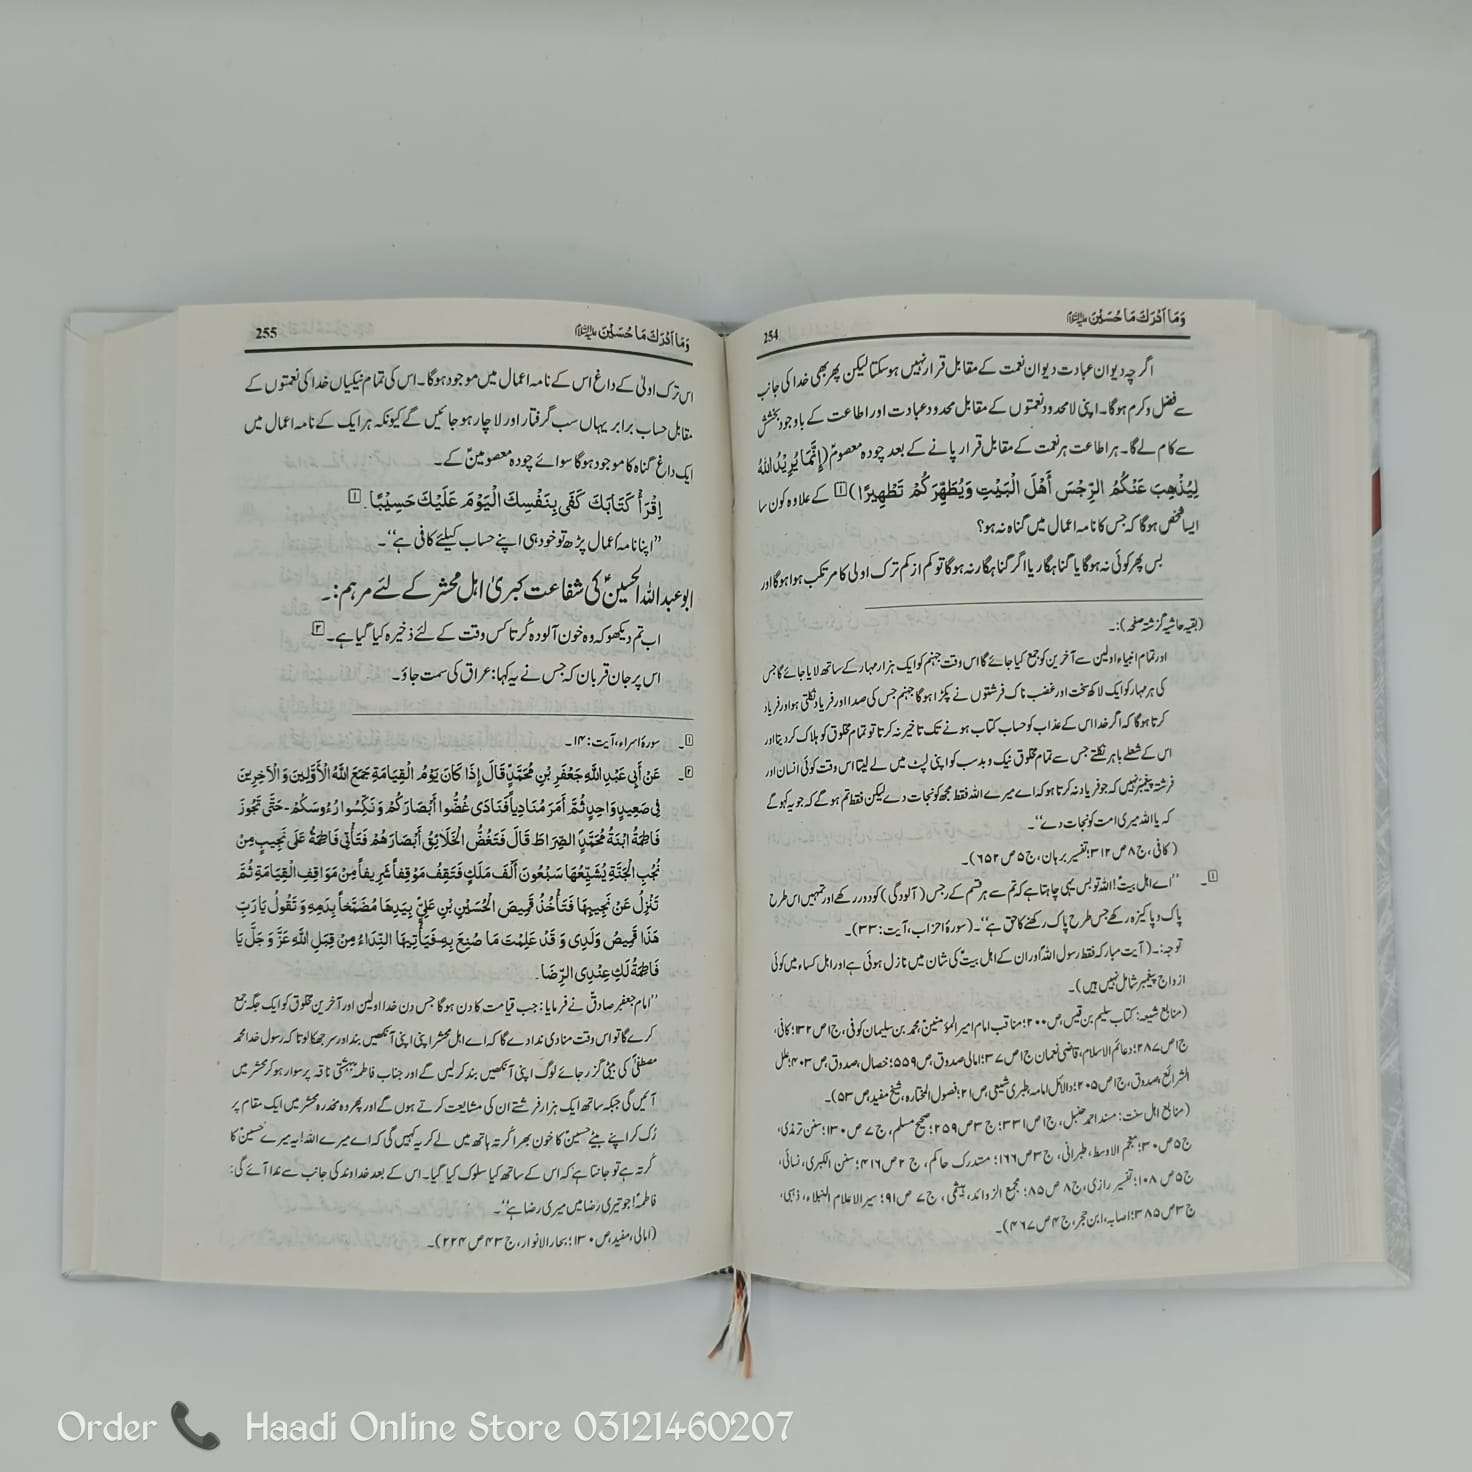 وَمَا اَدْرَكَ مَا حُسَيْنؑ
254
اگرچہ دیوان عبادت دیوان نعمت کے مقابل قرار نہیں ہوسکتا لیکن پھر بھی خدا کی جانب
سے فضل و کرم ہوگا۔ اپنی لامحدود نعمتوں کے مقابل محدود عبادت اور اطاعت کے باوجود بخشش
سے کام لے گا۔ ہر اطاعت ہر نعمت کے مقابل قرار پانے کے بعد چودہ معصومؑ (إِنَّمَا يُرِيْدُ اللّٰهُ
لِيُذْهِبَ عَنْكُمُ الرِّجْسَ أَهْلَ الْبَيْتِ وَيُطَهِّرَكُمْ تَطْهِيْرًا) [۱] کے علاوہ کون سا
ایسا شخص ہوگا کہ جس کا نامہ اعمال میں گناہ نہ ہو؟
بس پھر کوئی نہ ہوگا یا گناہگار یا اگر گناہگار نہ ہوگا تو کم از کم ترک اولیٰ کا مرتکب ہوا ہوگا اور
(بقیہ حاشیہ گزشتہ صفحہ):۔
اور تمام انبیاء اولین سے آخرین کو جمع کیا جائے گا اس وقت جہنم کو ایک ہزار مہار کے ساتھ لایا جائے گا جس
کی ہر مہار کو ایک لاکھ سخت اور غضب ناک فرشتوں نے پکڑا ہوگا جہنم جس کی صدا اور فریاد نکلتی ہو اور فریاد
کرتا ہوگا کہ اگر خدا اس کے عذاب کو حساب کتاب ہونے تک تاخیر نہ کرتا تو تمام مخلوق کو ہلاک کر دیتا اور
اس کے شعلے باہر نکلتے جس سے تمام مخلوق نیک و بد سب کو اپنی لپٹ میں لے لیتا اس وقت کوئی انسان اور
فرشتہ پیغمبر نہیں کہ جو فریاد نہ کرتا ہو کہ اے میرے اللہ فقط مجھ کو نجات دے لیکن فقط تم ہوگے کہ جو یہ کہو گے
کہ یا اللہ میری امت کو نجات دے"۔
(کافی، ج ۸ ص ۳۱۲؛ تفسیر برہان، ج ۵ ص ۶۵۲)۔
[۱]۔ "اے اہل بیتؑ! اللہ تو بس یہی چاہتا ہے کہ تم سے ہر قسم کے رجس (آلودگی) کو دور رکھے اور تمہیں اس طرح
پاک و پاکیزہ رکھے جس طرح پاک رکھنے کا حق ہے"۔ (سورۂ احزاب، آیت: ۳۳)۔
توجہ:۔ (آیت مبارکہ فقط رسول اللہؐ اور ان کے اہل بیتؑ کی شان میں نازل ہوئی ہے اور اہل کساء میں کوئی
ازواج پیغمبر شامل نہیں ہیں)۔
(منابع شیعہ: کتاب سلیم بن قیس، ص ۲۰۰؛ مناقب امام امیر المؤمنینؑ محمد بن سلیمان کوفی، ج ۱ ص ۱۳۲؛ کافی،
ج ۱ ص ۲۸۷؛ دعائم الاسلام، قاضی نعمان ج ۱ ص ۳۷؛ امالی صدوق، ص ۵۵۹؛ خصال، صدوق، ص ۴۰۳؛ علل
الشرائع، صدوق، ج ۱ ص ۲۰۵؛ دلائل امامہ، طبری شیعی، ص ۲۱؛ فصول المختارہ، شیخ مفید، ص ۵۳)۔
(منابع اہل سنت: مسند احمد حنبل، ج ۱ ص ۳۳۱؛ ج ۳ ص ۲۵۹؛ صحیح مسلم، ج ۷ ص ۱۳۰؛ سنن ترمذی،
ج ۵ ص ۳۰؛ معجم الاوسط، طبرانی، ج ۳ ص ۱۶۶؛ مستدرک حاکم، ج ۲ ص ۴۱۶؛ سنن الکبریٰ، نسائی،
ج ۵ ص ۱۰۸؛ تفسیر رازی، ج ۸ ص ۸۵؛ مجمع الزوائد، ہیثمی، ج ۷ ص ۹۱؛ سیر الاعلام النبلاء، ذہبی،
ج ۳ ص ۳۸۵؛ اصابہ، ابن حجر، ج ۴ ص ۴۶۷)۔
وَمَا اَدْرَكَ مَا حُسَيْنؑ
255
اس ترک اولیٰ کے داغ اس کے نامہ اعمال میں موجود ہوگا۔ اس کی تمام نیکیاں خدا کی نعمتوں کے
مقابل حساب برابر یہاں سب گرفتار اور لاچار ہو جائیں گے کیونکہ ہر ایک کے نامہ اعمال میں
ایک داغ گناہ کا موجود ہوگا سوائے چودہ معصومینؑ کے۔
اِقْرَأْ كِتَابَكَ كَفَى بِنَفْسِكَ الْيَوْمَ عَلَيْكَ حَسِيْبًا. [۱]
"اپنا نامہ اعمال پڑھ تو خود ہی اپنے حساب کیلئے کافی ہے"۔
ابو عبداللہ الحسینؑ کی شفاعت کبریٰ اہل محشر کے لئے مرہم:۔
اب تم دیکھو کہ وہ خون آلودہ کُرتا کس وقت کے لئے ذخیرہ کیا گیا ہے۔ [۲]
اس پر جان قربان کہ جس نے یہ کہا: عراق کی سمت جاؤ۔
[۱]۔ سورۂ اسراء، آیت: ۱۴۔
[۲]۔ عَنْ أَبِي عَبْدِ اللَّهِ جَعْفَرِ بْنِ مُحَمَّدٍ قَالَ إِذَا كَانَ يَوْمُ الْقِيَامَةِ جَمَعَ اللَّهُ الْأَوَّلِينَ وَ الْآخِرِينَ
فِي صَعِيدٍ وَاحِدٍ ثُمَّ أَمَرَ مُنَادِياً فَنَادَى غُضُّوا أَبْصَارَكُمْ وَ نَكِّسُوا رُءُوسَكُمْ-حَتَّى تَجُوزَ
فَاطِمَةُ ابْنَةُ مُحَمَّدٍ الصِّرَاطَ قَالَ فَتَغُضُّ الْخَلَائِقُ أَبْصَارَهُمْ فَتَأْتِي فَاطِمَةُ عَلَى نَجِيبٍ مِنْ
نُجُبِ الْجَنَّةِ يُشَيِّعُهَا سَبْعُونَ أَلْفَ مَلَكٍ فَتَقِفُ مَوْقِفاً شَرِيفاً مِنْ مَوَاقِفِ الْقِيَامَةِ ثُمَّ
تَنْزِلُ عَنْ نَجِيبِهَا فَتَأْخُذُ قَمِيصَ الْحُسَيْنِ بْنِ عَلِيٍّ بِيَدِهَا مُضَمَّخاً بِدَمِهِ وَ تَقُولُ يَا رَبِّ
هَذَا قَمِيصُ وَلَدِي وَ قَدْ عَلِمْتَ مَا صُنِعَ بِهِ-فَيَأْتِيهَا النِّدَاءُ مِنْ قِبَلِ اللَّهِ عَزَّ وَ جَلَّ يَا
فَاطِمَةُ لَكِ عِنْدِي الرِّضَا.
"امام جعفر صادقؑ نے فرمایا: جب قیامت کا دن ہوگا جس دن خدا اولین اور آخرین مخلوق کو ایک جگہ جمع
کرے گا تو اس وقت منادی ندا دے گا کہ اے اہل محشر اپنی اپنی آنکھیں بند اور سر جھکا لو تاکہ رسول خدا محمد
مصطفیٰؐ کی بیٹی گزر جائے لوگ اپنی آنکھیں بند کرلیں گے اور جناب فاطمہؑ بہشتی ناقہ پر سوار ہو کر محشر میں
آئیں گی جبکہ ساتھ ایک ہزار فرشتے ان کی مشایعت کرتے ہوں گے اور پھر وہ مخدرہ محشر میں ایک مقام پر
رُک کر اپنے بیٹے حسینؑ کا خون بھرا کُرتہ ہاتھ میں لے کر یہ کہیں گی کہ اے میرے اللہ! یہ میرے حسینؑ کا
کُرتہ ہے تو جانتا ہے کہ اس کے ساتھ کیا سلوک کیا گیا۔ اس کے بعد خداوند کی جانب سے ندا آئے گی:
فاطمہؑ! جو تیری رضا میں میری رضا ہے"۔
(امالی، مفید، ص ۱۳۰؛ بحار الانوار، ج ۴۳ ص ۲۲۴)۔
Order Haadi Online Store 03121460207